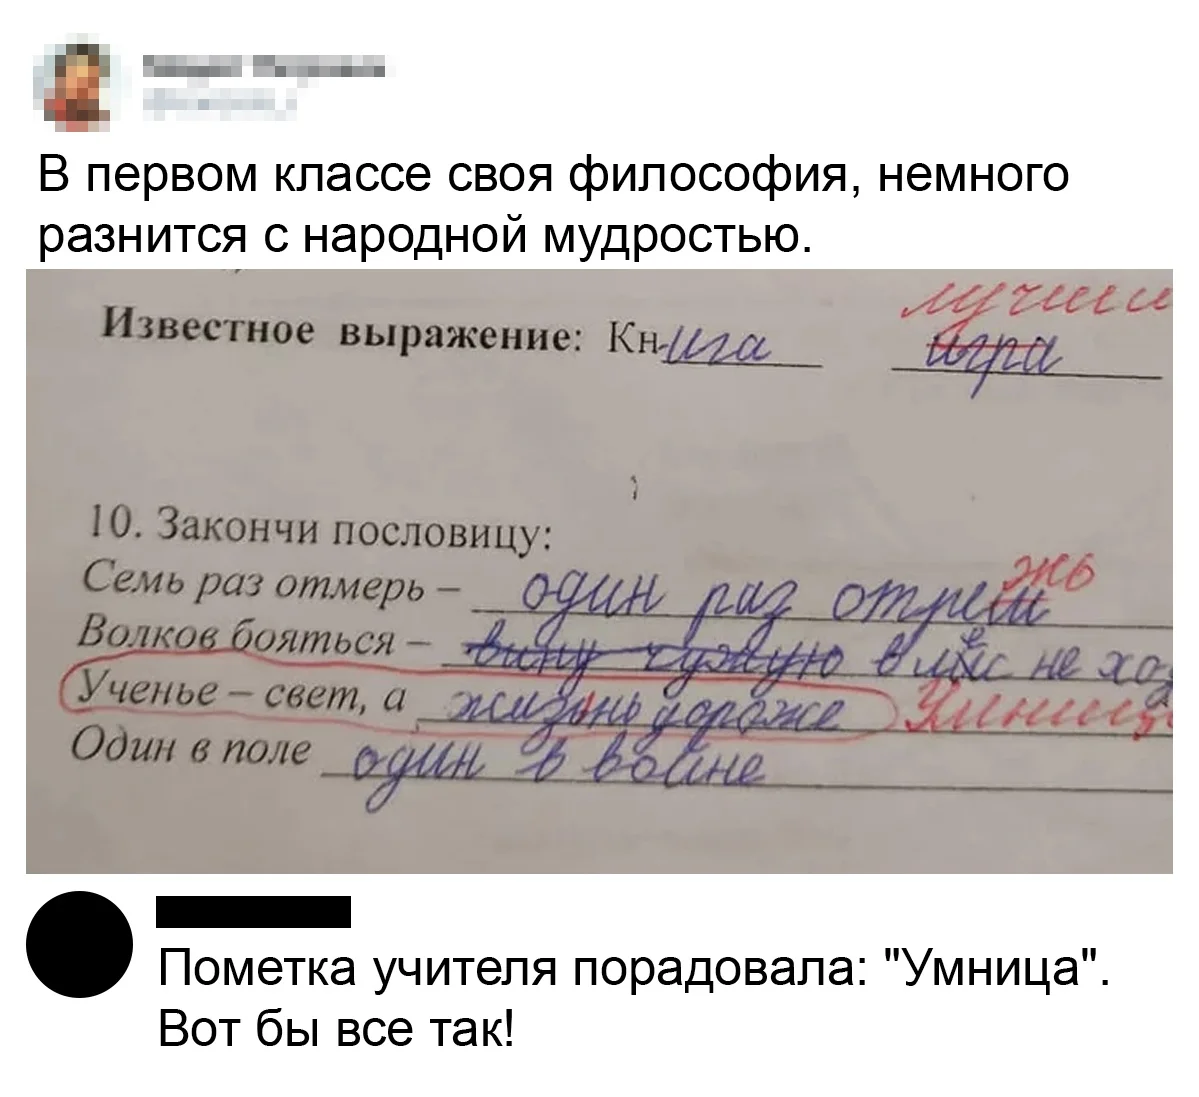 В первом классе своя философия, немного
разнится с народной мудростью.
лучши
Известное выражение: Книга игра
10. Закончи пословицу:
жь
Семь раз отмерь – один раз отреш
Волков бояться – вину чужую в лес не ход
Ученье – свет, а жизнь дороже Умница
Один в поле один в войне
Пометка учителя порадовала: "Умница".
Вот бы все так!